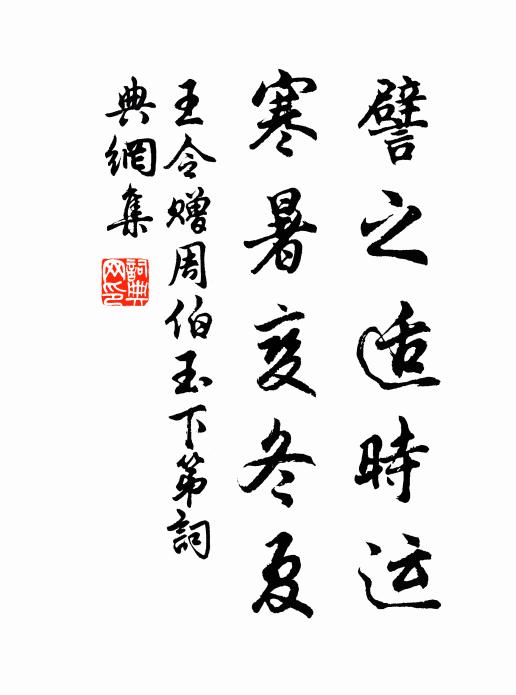 譬之适時运
寒暑变冬夏
王令赠周伯玉下第詞
典網集
詞典网印